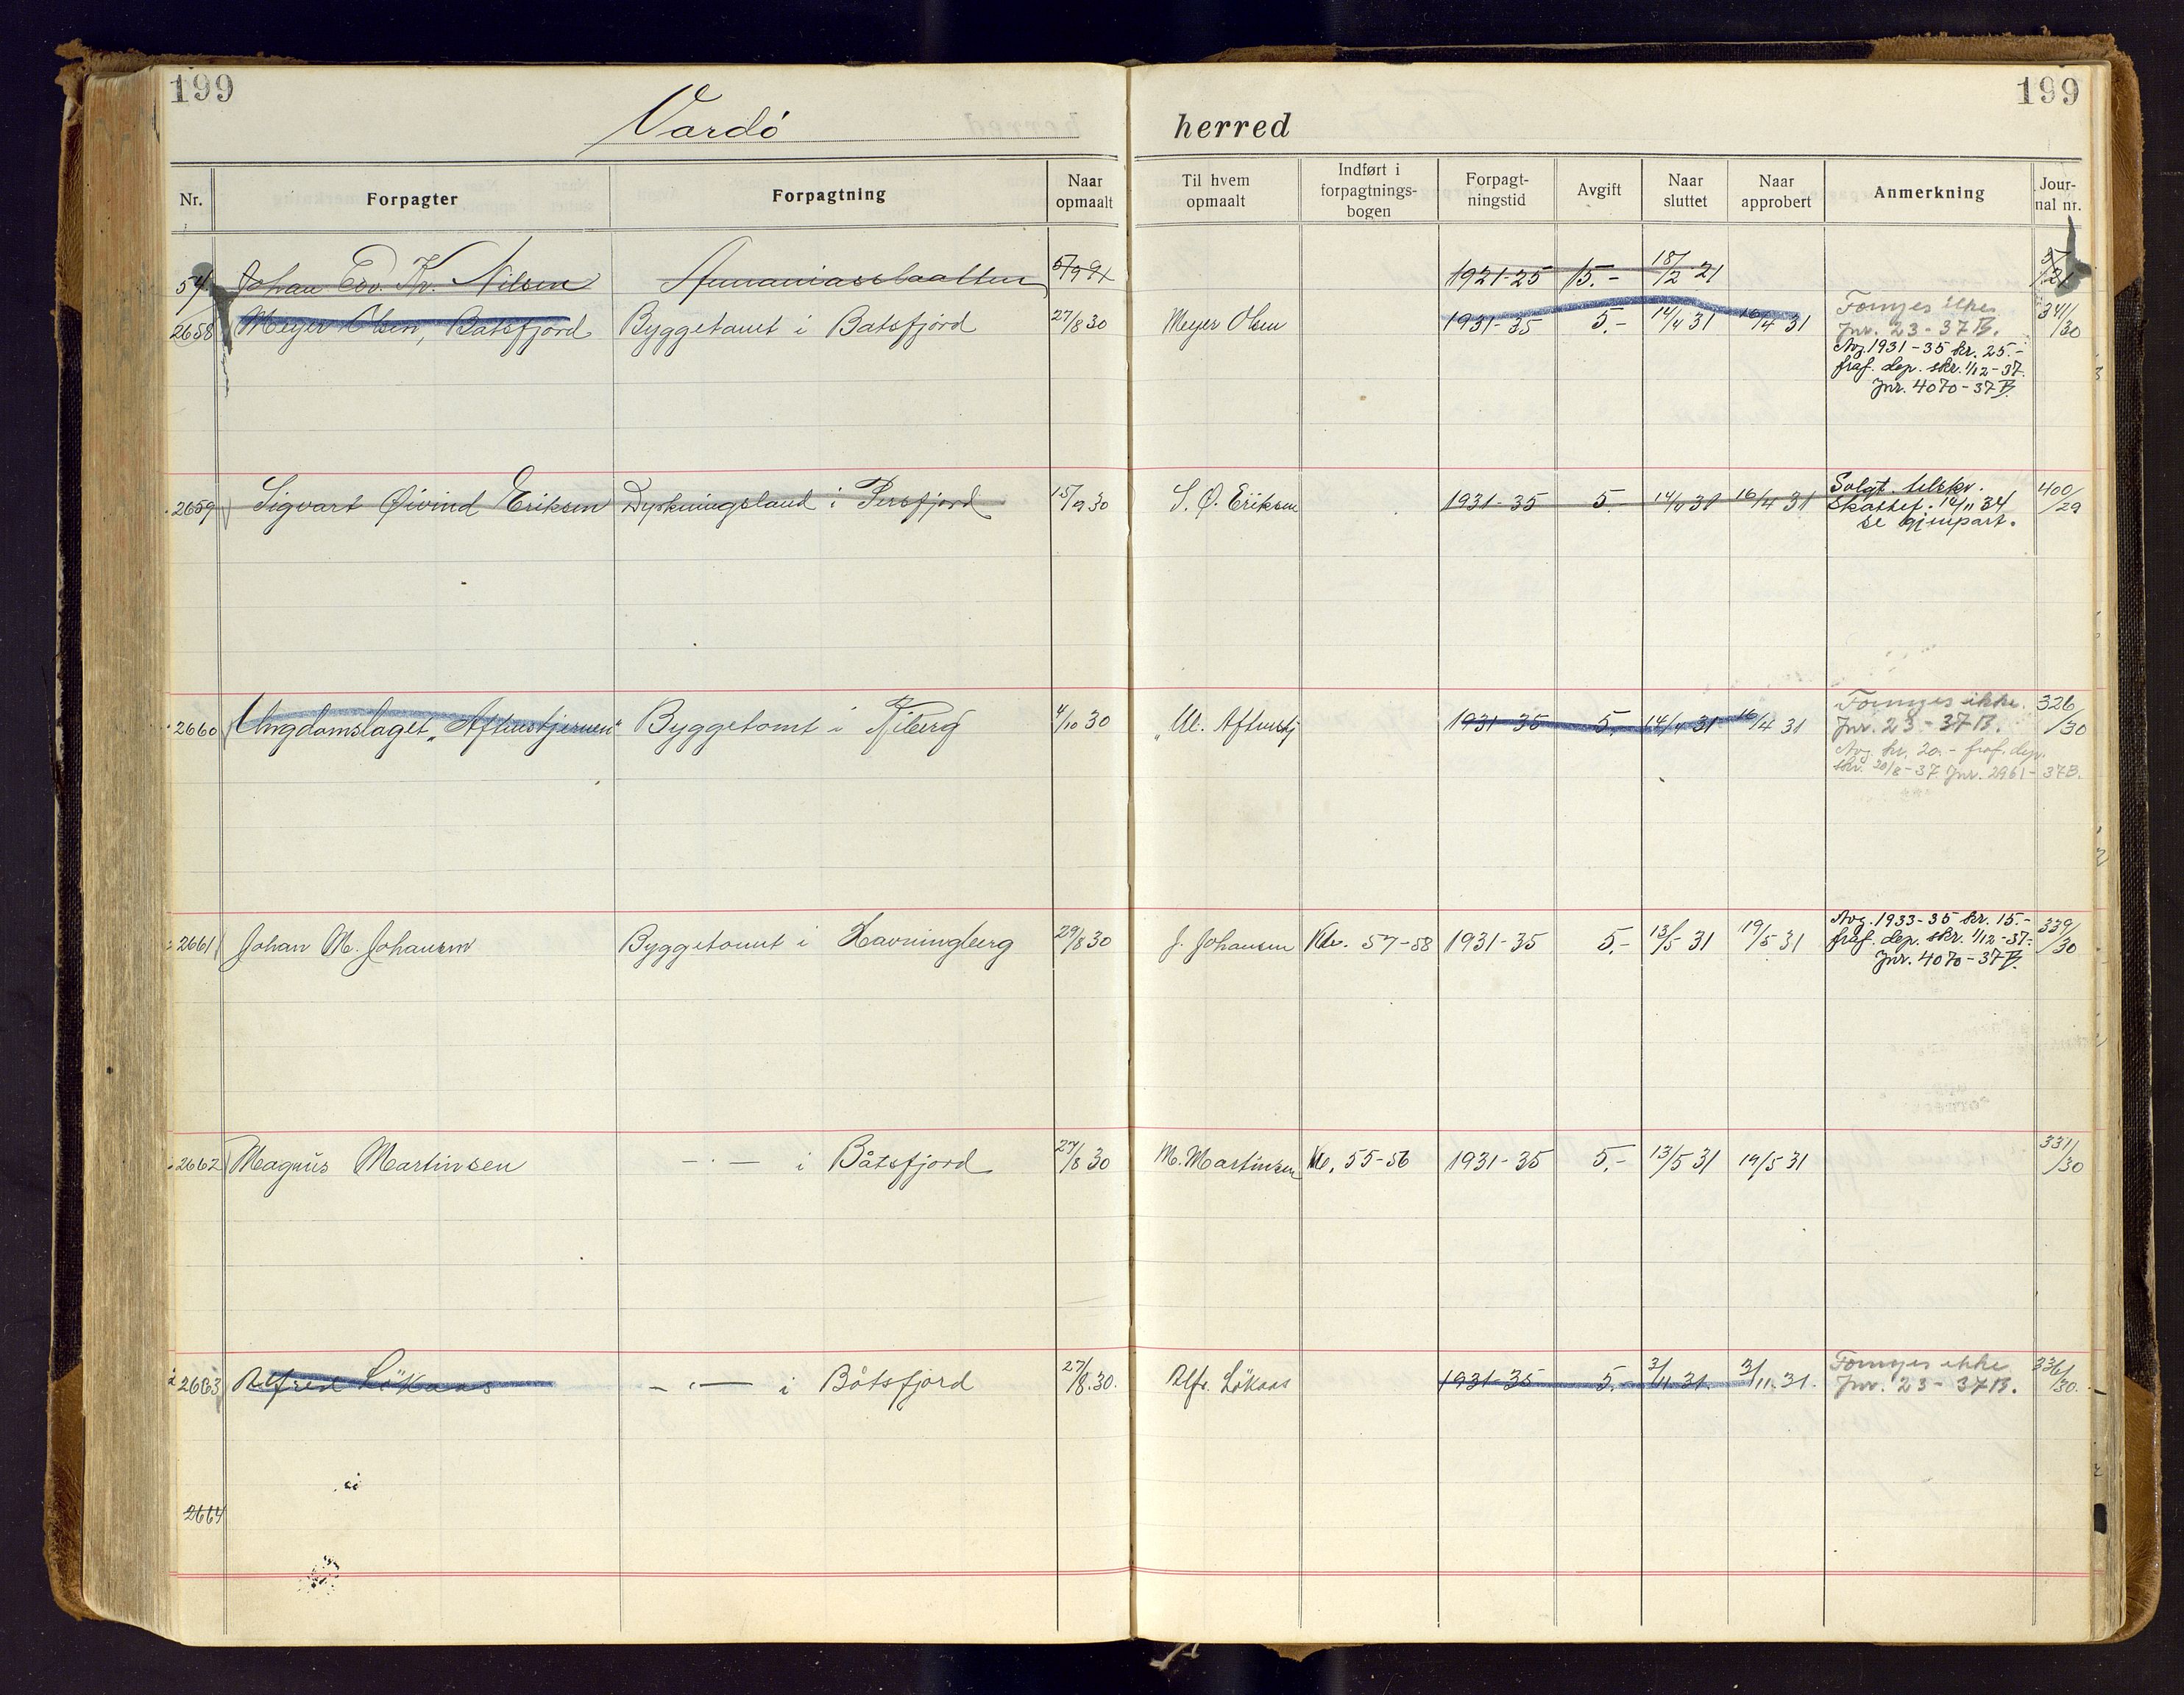 199
199
Vardö herred
Nr. Forpagter Forpagtning Naar opmaalt Til hvem opmaalt Indført i forpagtnings-bogen Forpagt-ningstid Avgift Naar sluttet Naar approbert Anmerkning Jour-nal nr.
54 Johan Edv. Kr. Nilsen 1921-25 15.- 18/2 21
2658 Meyer Olsen, Båtsfjord Byggetomt i Båtsfjord 27/8 30 Meyer Olsen 1931-35 5.- 14/4 31 16/4 31 Fornyes ikke 341/30
Jnr. 23-37B.
Avg. 1931-35 kr. 25.-
fraf. dep. skr. 1/12-37.
Jnr. 4070-37B.
2659 Sigvart Øivind Eriksen Dyrkningsland i Persfjord 15/9 30 S. Ø. Eriksen 1931-35 5.- 14/4 31 16/4 31 Solgt. 400/29
34
se gjenpart.
2660 Ungdomslaget "Aftenstjernen" Byggetomt i Kiberg 4/10 30 Ul. Aftenstj 1931-35 5.- 14/4 31 16/4 31 Fornyes ikke. 326/30
Jnr. 23-37B.
Avg. kr. 20.- fraf. dep.
skr. 20/8-37. Jnr. 2961-37B.
2661 Johan M. Johansen Byggetomt i Havningberg 29/8 30 J. Johansen Kl. 57-58 1931-35 5.- 13/5 31 19/5 31 Avg. 1933-35 kr. 15.- 339/30
fraf. dep. skr. 1/12-37.
Jnr. 4070-37B.
2662 Magnus Martinsen -·- i Båtsfjord 27/8 30 M. Martinsen Kl. 55-56 1931-35 5.- 13/5 31 19/5 31 331/30
2663 Alfred Lökaas -·- i Båtsfjord 27/8.30. Alfr. Lökaas 1931-35 5.- 3/11.31. 3/11.31. Fornyes ikke 336/30.
Jnr. 23-37B.
2664